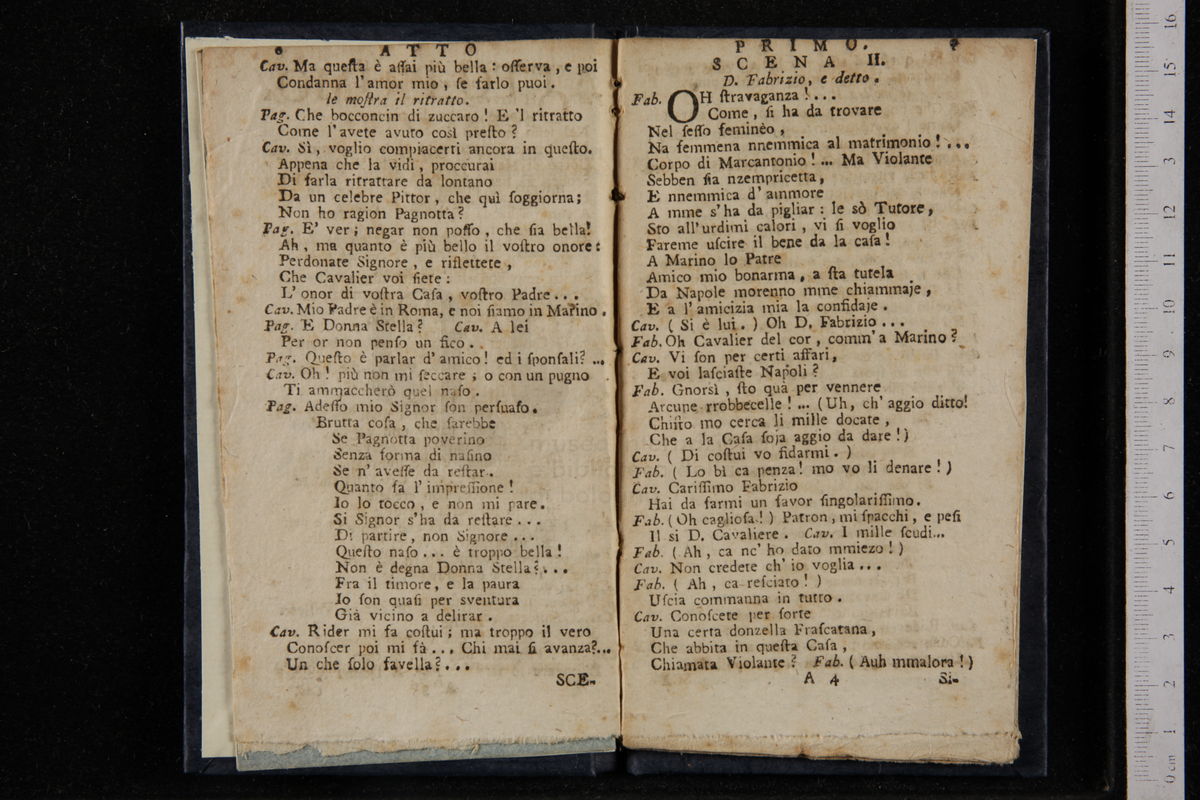 ATTO
Cav. Ma queſta è aſſai più bella: oſſerva, e poi
Condanna l'amor mio, ſe farlo puoi.
le moſtra il ritratto.
Pag. Che bocconcin di zuccaro! E 'l ritratto
Come l'avete avuto così preſto?
Cav. Sì, voglio compiacerti ancora in queſto.
Appena che la vidi, proccurai
Di farla ritrattare da lontano
Da un celebre Pittor, che quì ſoggiorna;
Non ho ragion Pagnotta?
Pag. E' ver; negar non poſſo, che ſia bella!
Ah, ma quanto è più bello il voſtro onore:
Perdonate Signore, e riflettete,
Che Cavalier voi ſiete:
L'onor di voſtra Caſa, voſtro Padre...
Cav. Mio Padre è in Roma, e noi ſiamo in Marino.
Pag. E Donna Stella? Cav. A lei
Per or non penſo un fico.
Pag. Queſto è parlar d'amico! ed i ſponſali? ...
Cav. Oh! più non mi ſeccare; o con un pugno
Ti ammaccherò quel naſo.
Pag. Adeſſo mio Signor ſon perſuaſo.
Brutta coſa, che ſarebbe
Se Pagnotta poverino
Senza forma di naſino
Se n'aveſſe da reſtar.
Quanto fa l'impreſſione!
Io lo tocco, e non mi pare.
Si Signor s'ha da reſtare...
Di partire, non Signore...
Queſto naſo... è troppo bella!
Non è degna Donna Stella?...
Fra il timore, e la paura
Io ſon quaſi per sventura
Già vicino a delirar.
Cav. Rider mi fa coſtui; ma troppo il vero
Conoſcer poi mi fà... Chi mai ſi avanza?...
Un che ſolo favella?...
SCE-
PRIMO.
SCENA II.
D. Fabrizio, e detto.
Fab. OH ſtravaganza!...
Come, ſi ha da trovare
Nel ſeſſo feminèo,
Na femmena nnemmica al matrimonio!...
Corpo di Marcantonio! ... Ma Violante
Sebben ſia nzempricetta,
E nnemmica d'ammore
A mme s'ha da pigliar: le sò Tutore,
Sto all'urdimi calori, vi ſi voglio
Fareme uſcire il bene da la caſa!
A Marino lo Patre
Amico mio bonarma, a ſta tutela
Da Napole morenno mme chiammaje,
E a l'amicizia mia la confidaje.
Cav. ( Si è lui. ) Oh D. Fabrizio...
Fab. Oh Cavalier del cor, comm'a Marino?
Cav. Vi ſon per certi affari,
E voi laſciaſte Napoli?
Fab. Gnorsì, ſto quà per vennere
Arcune rrobbecelle! ... (Uh, ch'aggio ditto!
Chiſto mo cerca li mille docate,
Che a la Caſa ſoja aggio da dare!)
Cav. ( Di coſtui vo fidarmi. )
Fab. ( Lo bì ca penza! mo vo li denare! )
Cav. Cariſſimo Fabrizio
Hai da farmi un favor ſingolariſſimo.
Fab. (Oh cagliofa!) Patron, mi ſpacchi, e peſi
Il si D. Cavaliere. Cav. I mille ſcudi...
Fab. ( Ah, ca nc' ho dato mmiezo! )
Cav. Non credete ch'io voglia...
Fab. ( Ah, ca reſciato! )
Uſcia commanna in tutto.
Cav. Conoſcete per ſorte
Una certa donzella Fraſcatana,
Che abbita in queſta Caſa,
Chiamata Violante? Fab. (Auh mmalora!)
A 4 Si-
16
15
14
13
12
11
10
9
8
7
6
5
4
3
2
1
0 cm